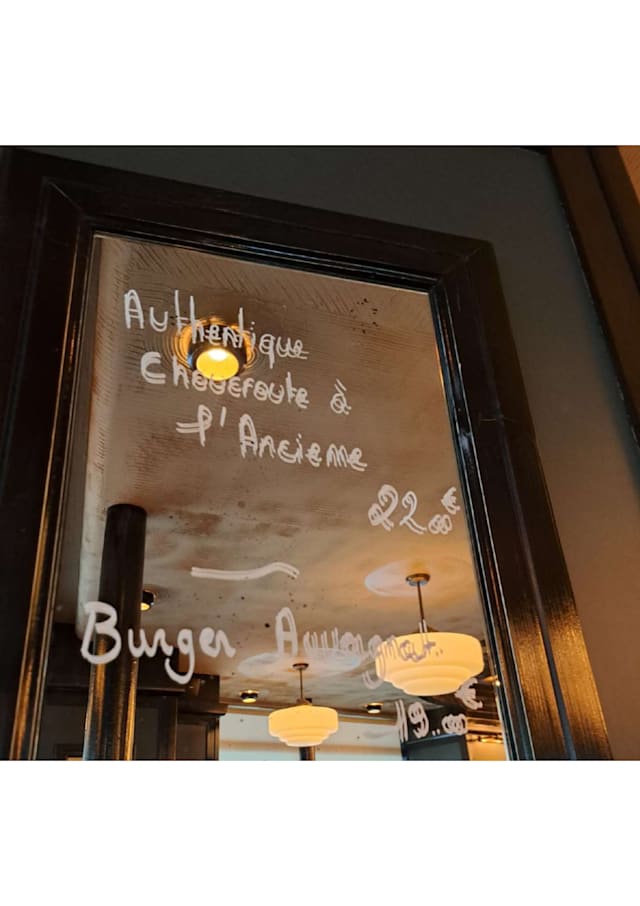 Authentique
Choucroute à
l'Ancienne
22.00€
Burger Auvergnat
19.00€